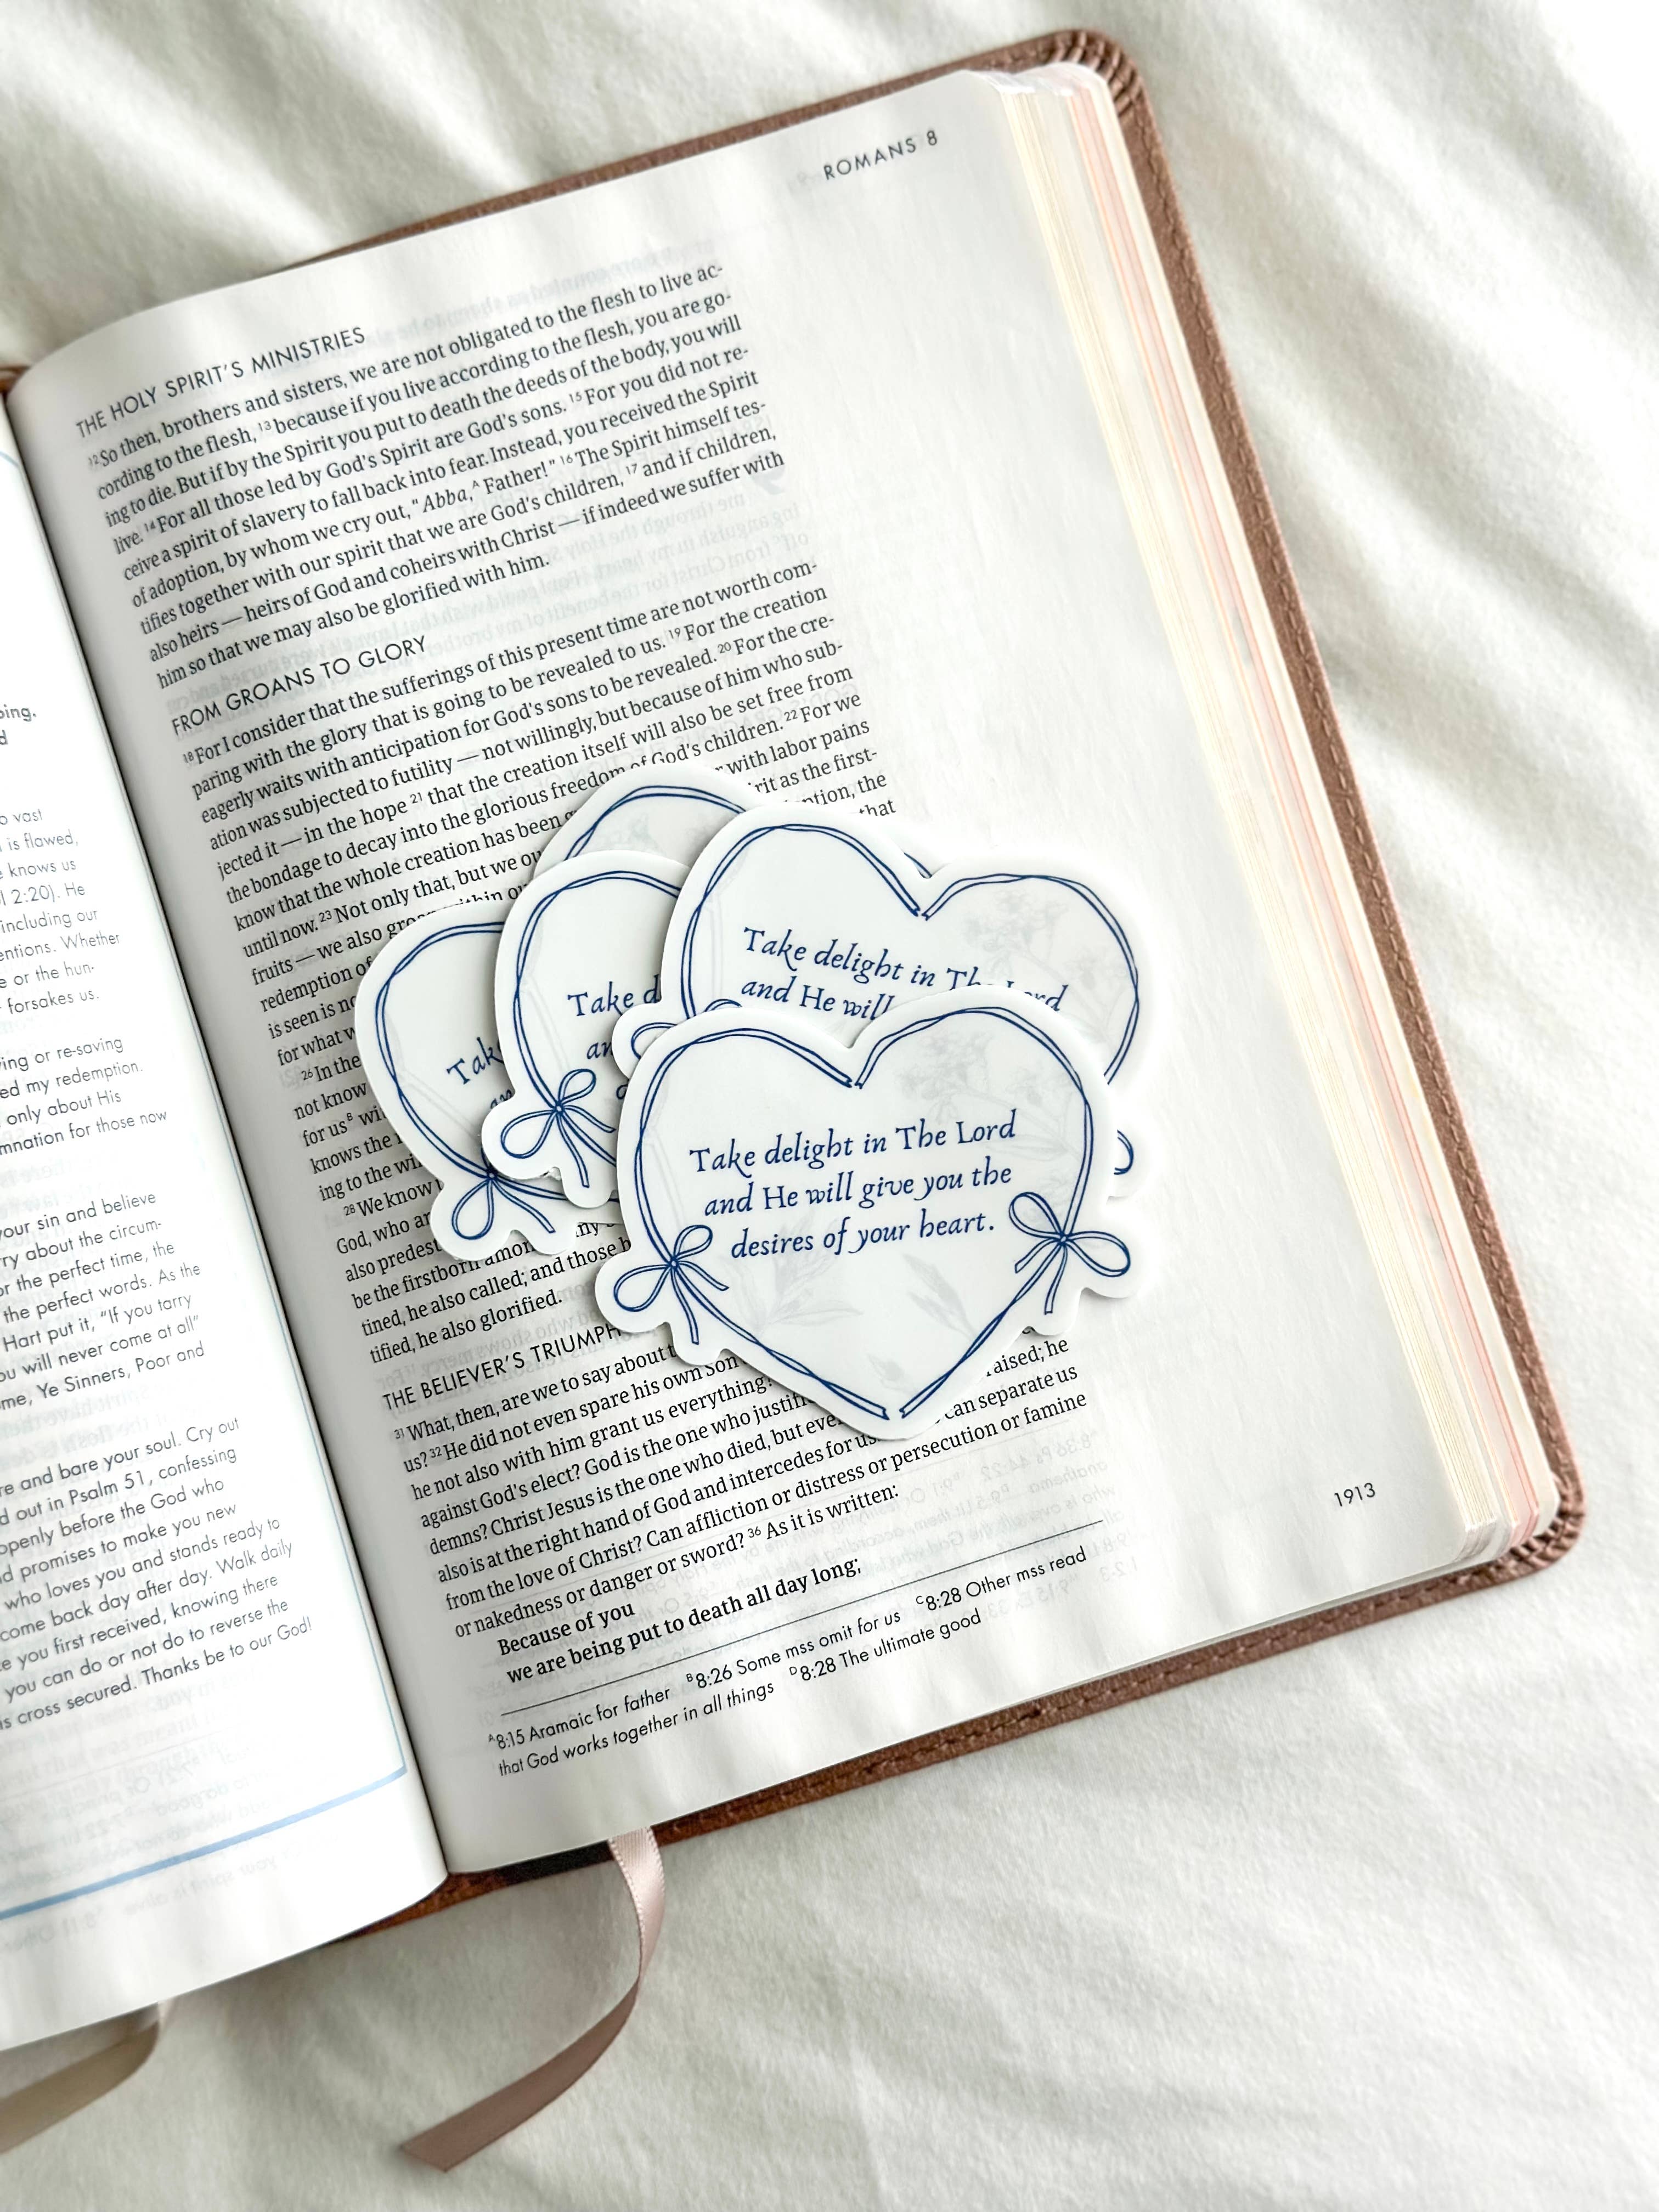 ping.
d
o vast
is flawed,
e knows us
l 2:20). He
including our
entions. Whether
e or the hun-
forsakes us.
ving or re-saving
ed my redemption.
only about His
mnation for those now
your sin and believe
rry about the circum-
or the perfect time, the
the perfect words. As the
Hart put it, "If you tarry
ou will never come at all"
me, Ye Sinners, Poor and
re and bare your soul. Cry out
d out in Psalm 51, confessing
openly before the God who
nd promises to make you new
who loves you and stands ready to
come back day after day. Walk daily
e you first received, knowing there
you can do or not do to reverse the
is cross secured. Thanks be to our God!
ROMANS 8
THE HOLY SPIRIT'S MINISTRIES
12 So then, brothers and sisters, we are not obligated to the flesh to live ac-
cording to the flesh, 13 because if you live according to the flesh, you are go-
ing to die. But if by the Spirit you put to death the deeds of the body, you will
live. 14 For all those led by God's Spirit are God's sons. 15 For you did not re-
ceive a spirit of slavery to fall back into fear. Instead, you received the Spirit
of adoption, by whom we cry out, "Abba,A Father!" 16 The Spirit himself tes-
tifies together with our spirit that we are God's children, 17 and if children,
also heirs — heirs of God and coheirs with Christ — if indeed we suffer with
him so that we may also be glorified with him.
FROM GROANS TO GLORY
18 For I consider that the sufferings of this present time are not worth com-
paring with the glory that is going to be revealed to us. 19 For the creation
eagerly waits with anticipation for God's sons to be revealed. 20 For the cre-
ation was subjected to futility — not willingly, but because of him who sub-
jected it — in the hope 21 that the creation itself will also be set free from
the bondage to decay into the glorious freedom of God's children. 22 For we
know that the whole creation has been with labor pains
until now. 23 Not only that, but we ou rit as the first-
fruits — we also groan within ou ption, the
redemption of that
is seen is no
for what w
26 In the
not know
for usB wi
knows the
ing to the wi
28 We know
God, who ar
also predest
be the firstborn among many
tined, he also called; and those
tified, he also glorified.
THE BELIEVER'S TRIUMPH
31 What, then, are we to say about t
us? 32 He did not even spare his own Son
he not also with him grant us everything? aised; he
against God's elect? God is the one who justif can separate us
demns? Christ Jesus is the one who died, but eve
also is at the right hand of God and intercedes for us.
from the love of Christ? Can affliction or distress or persecution or famine
or nakedness or danger or sword? 36 As it is written:
Because of you
we are being put to death all day long;
A8:15 Aramaic for father B8:26 Some mss omit for us C8:28 Other mss read
that God works together in all things D8:28 The ultimate good
1913
Take
an
Take d
an
d
Take delight in The Lord
and He will
Take delight in The Lord
and He will give you the
desires of your heart.